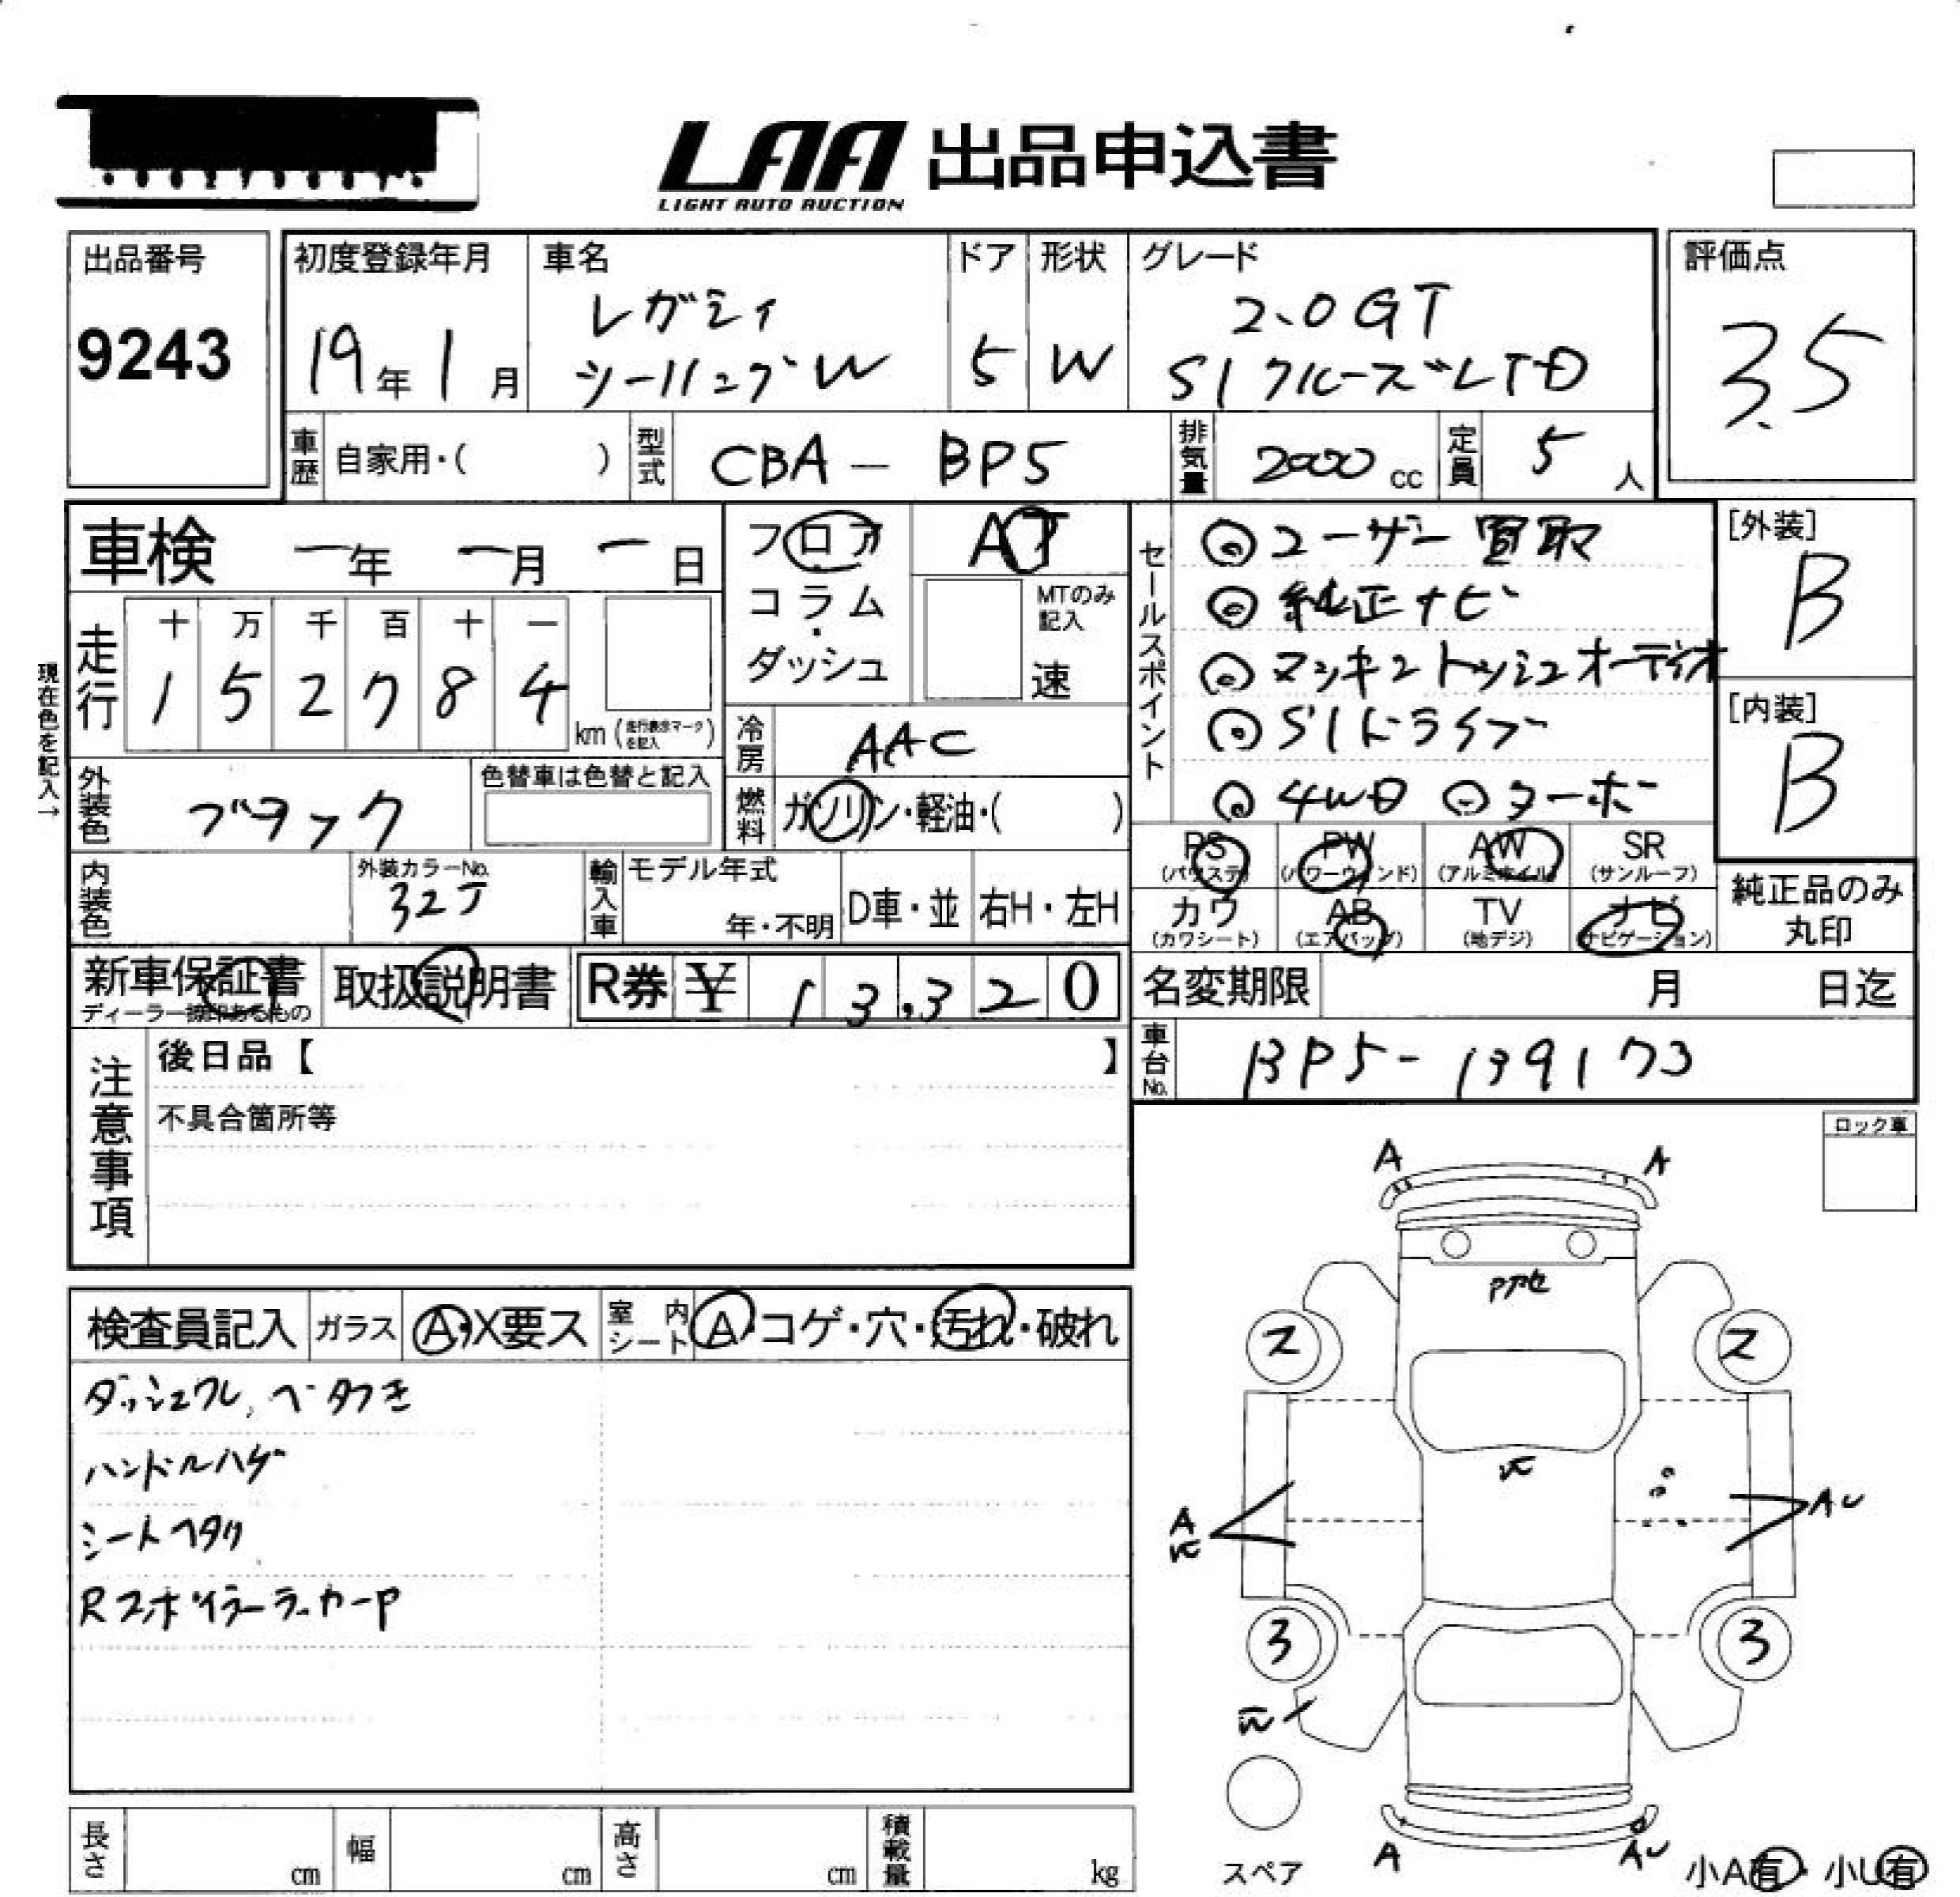 LAA 出品申込書
LIGHT AUTO AUCTION
出品番号
9243
初度登録年月
19年1月
車名
レガシィ
ツーリングW
ドア
5
形状
W
グレード
2.0GT
SIクルーズLTD
評価点
3.5
車歴
自家用・( )
型式
CBA - BP5
排気量
2000 cc
定員
5 人
車検 ー年 ー月 ー日
フロア
コラム
・
ダッシュ
AT
MTのみ
記入
速
セールスポイント
◎ユーザー買取
◎純正ナビ
◎マッキントッシュオーディオ
◎SIドライブ
◎4WD ◎ターボー
[外装]
B
[内装]
B
現在色を記入→
走行
十 万 千 百 十 一
1 5 2 7 8 4
km (走行表示マークを記入)
冷房
AAC
外装色
ブラック
色替車は色替と記入
燃料
ガソリン・軽油・( )
PS PW AW SR
(パワステ) (パワーウィンド) (アルミホイル) (サンルーフ)
カワ AB TV ナビ
(カワシート) (エアバッグ) (地デジ) (ナビゲーション)
純正品のみ
丸印
内装色
外装カラーNo.
32J
輸入車
モデル年式
年・不明
D車・並
右H・左H
新車保証書
取扱説明書
R券 ¥ 13,320
名変期限 月 日迄
車台No.
BP5-139173
注意事項
後日品【 】
不具合箇所等
ロック車
検査員記入
ガラス
A・X要ス
室内シート
A・コゲ・穴・汚れ・破れ
ダッシュワレ、ベタつき
ハンドルハゲ
シートヘタリ
RスポイラーラッカーP
A
A
Pアセ
2
2
A
AU
3
3
A
AU
スペア
小A有・小U有
長さ
cm
幅
cm
高さ
cm
積載量
kg